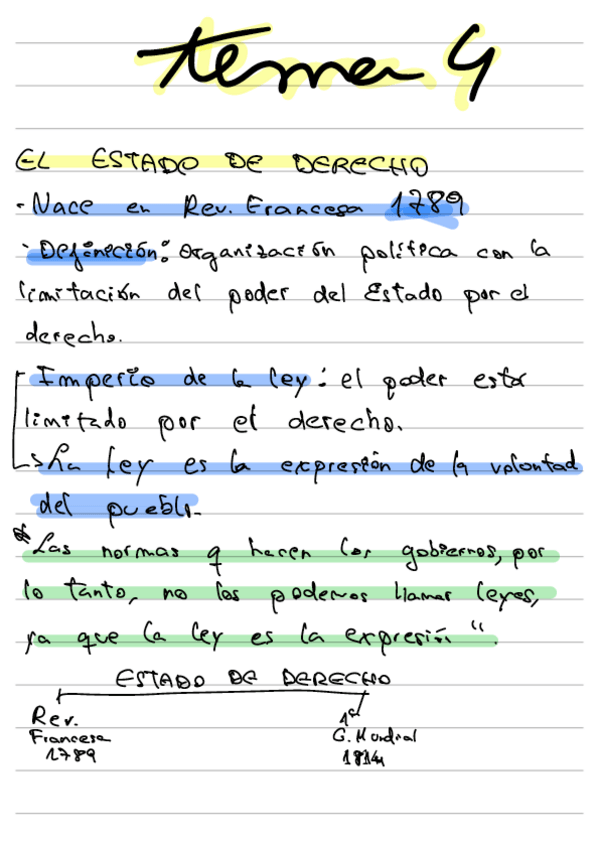 tema 4
EL ESTADO DE DERECHO
- Nace en Rev. Francesa 1789
- Definición: organización política con la
limitación del poder del Estado por el
derecho.
Imperio de la ley: el poder está
limitado por el derecho.
→ La ley es la expresión de la voluntad
del pueblo.
* Las normas q hacen los gobiernos, por
lo tanto, no las podemos llamar leyes,
ya que la ley es la expresión “.
ESTADO DE DERECHO
Rev. 1ª
Francesa G. Mundial
1789 1814